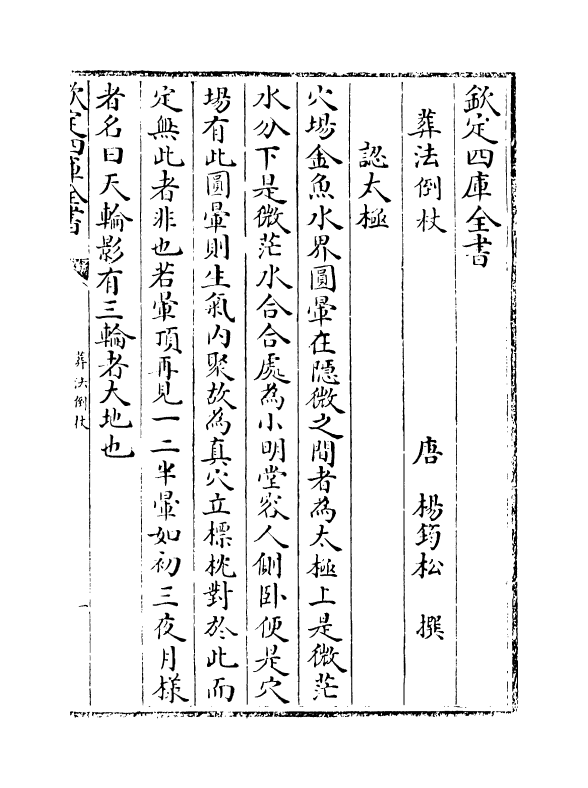 欽定四庫全書
葬法倒杖
唐 楊筠松 撰
認太極
穴場金魚水界圓暈在隱微之間者為太極上是微茫
水分下是微茫水合合處為小明堂容人側卧便是穴
場有此圓暈則生氣内聚故為真穴立標枕對於此而
定無此者非也若暈頂再見一二半暈如初三夜月樣
者名曰天輪影有三輪者大地也
欽定四庫全書
葬法倒杖
一